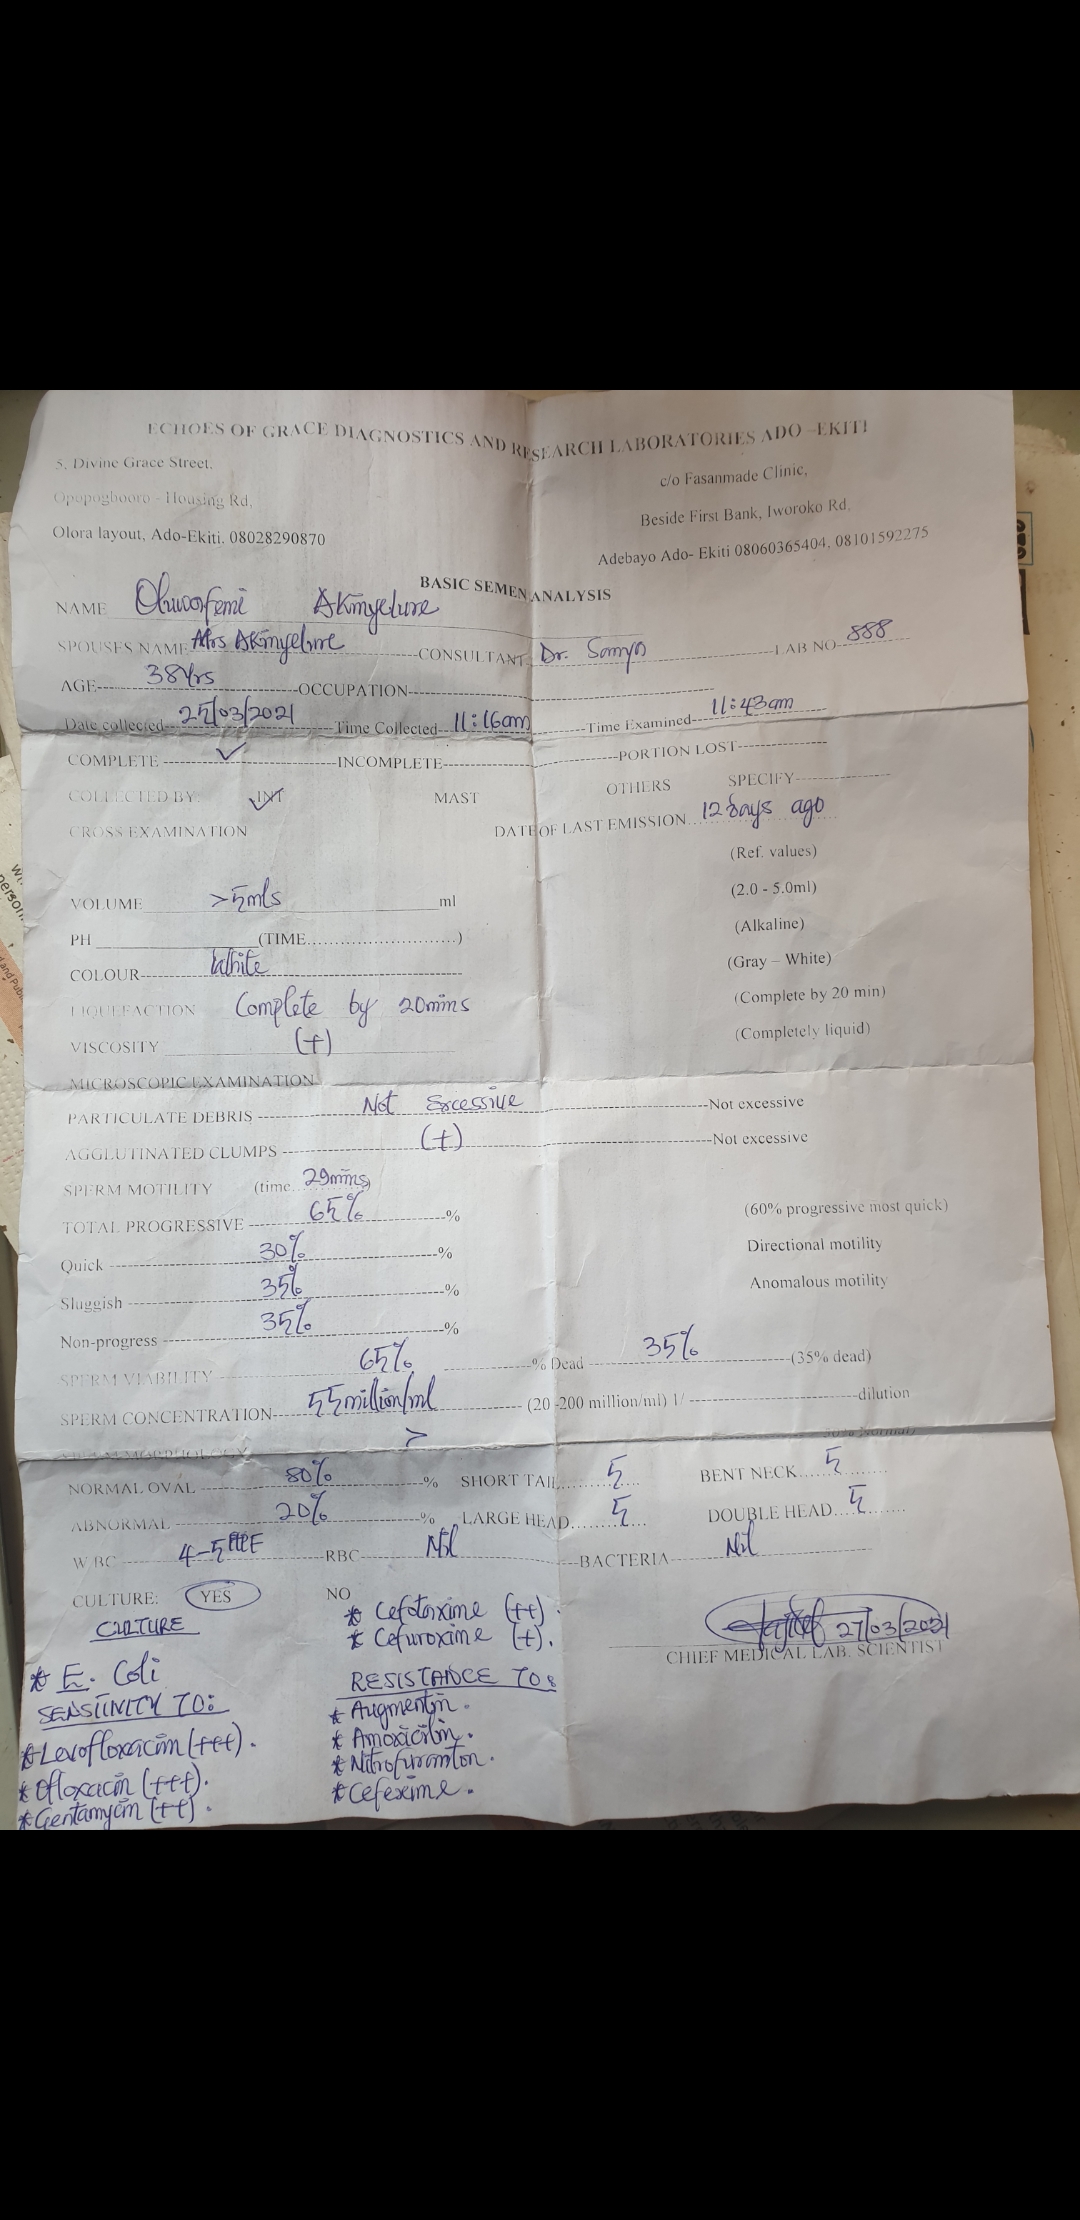 ECHOES OF GRACE DIAGNOSTICS AND RESEARCH LABORATORIES ADO –EKITI
5, Divine Grace Street,
c/o Fasanmade Clinic,
Opopogbooro - Housing Rd,
Beside First Bank, Iworoko Rd,
Olora layout, Ado-Ekiti. 08028290870
Adebayo Ado- Ekiti 08060365404, 08101592275
BASIC SEMEN ANALYSIS
NAME Oluwafemi Akinyelure
SPOUSES NAME Mrs Akinyelure CONSULTANT Dr. LAB NO 888
AGE 38Yrs OCCUPATION
Date collected 25/03/2021 Time Collected 11:16am Time Examined 11:43am
COMPLETE ✓ INCOMPLETE PORTION LOST
COLLECTED BY: INT ✓ MAST OTHERS SPECIFY
CROSS EXAMINATION DATE OF LAST EMISSION 12 days ago
(Ref. values)
VOLUME >5mls ml (2.0 - 5.0ml)
PH (TIME……………………) (Alkaline)
COLOUR White (Gray – White)
LIQUEFACTION Complete by 20mins (Complete by 20 min)
VISCOSITY (+) (Completely liquid)
MICROSCOPIC EXAMINATION
PARTICULATE DEBRIS Not Excessive Not excessive
AGGLUTINATED CLUMPS (+) Not excessive
SPERM MOTILITY (time 29mins)
TOTAL PROGRESSIVE 65% % (60% progressive most quick)
Quick 30% % Directional motility
Sluggish 35% % Anomalous motility
Non-progress 35% %
SPERM VIABILITY 65% % Dead 35% (35% dead)
SPERM CONCENTRATION 55million/ml (20 -200 million/ml) 1/ dilution
>
NORMAL OVAL 80% % SHORT TAIL 5 BENT NECK 5
ABNORMAL 20% % LARGE HEAD 5 DOUBLE HEAD 5
W.BC 4-5 HPF RBC Nil BACTERIA Nil
CULTURE: YES NO
CULTURE
* E. Coli
SENSITIVITY TO:
* Levofloxacin (+++).
* Ofloxacin (+++).
* Gentamycin (++).
* Cefotaxime (++).
* Cefuroxime (+).
RESISTANCE TO:
* Augmentin.
* Amoxicilin.
* Nitrofuranton.
* Cefexime.
27/03/2021
CHIEF MEDICAL LAB. SCIENTIST